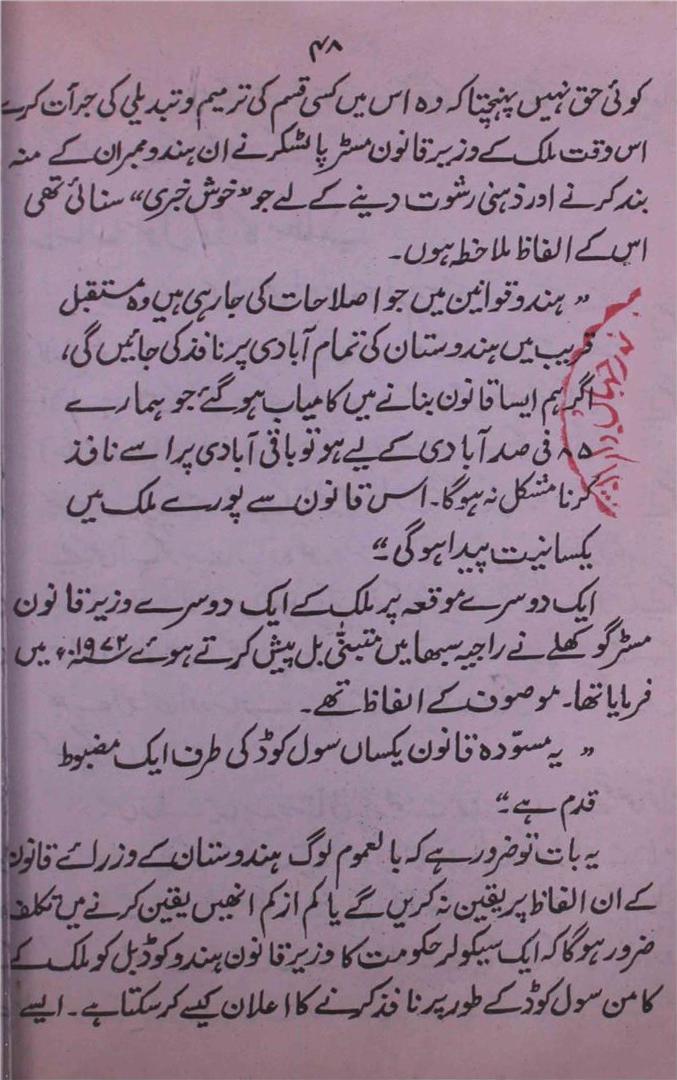 ۴۸
کوئی حق نہیں پہنچتا کہ وہ اس میں کسی قسم کی ترمیم و تبدیلی کی جرأت کرے
اس وقت ملک کے وزیر قانون مسٹر پاٹسکر نے ان ہندو ممبران کے منہ
بند کرنے اور ذہنی رشوت دینے کے لیے جو "خوش خبری" سنائی تھی
اس کے الفاظ ملاحظہ ہوں۔
"ہندو قوانین میں جو اصلاحات کی جا رہی ہیں وہ مستقبل
قریب میں ہندوستان کی تمام آبادی پر نافذ کی جائیں گی،
اگر ہم ایسا قانون بنانے میں کامیاب ہو گئے جو ہمارے
۸۵ فی صد آبادی کے لیے ہو تو باقی آبادی پر اسے نافذ
کرنا مشکل نہ ہوگا۔ اس قانون سے پورے ملک میں
یکسانیت پیدا ہوگی۔"
ایک دوسرے موقعہ پر ملک کے ایک دوسرے وزیر قانون
مسٹر گوکھلے نے راجیہ سبھا میں متبنّٰی بل پیش کرتے ہوئے ۱۹۷۲ء میں
فرمایا تھا۔ موصوف کے الفاظ تھے۔
"یہ مسوّدہ قانون یکساں سول کوڈ کی طرف ایک مضبوط
قدم ہے۔"
یہ بات تو ضرور ہے کہ بالعموم لوگ ہندوستان کے وزرائے قانون
کے ان الفاظ پر یقین نہ کریں گے یا کم از کم انھیں یقین کرنے میں تکلف
ضرور ہوگا کہ ایک سیکولر حکومت کا وزیر قانون ہندو کوڈ بل کو ملک کے
کامن سول کوڈ کے طور پر نافذ کرنے کا اعلان کیسے کر سکتا ہے۔ ایسے